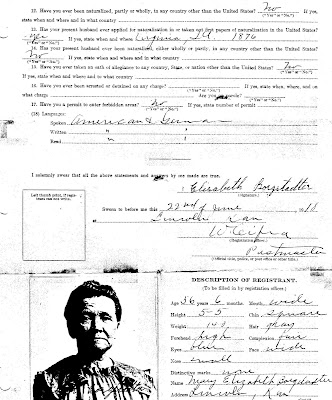 12. Have you ever been naturalized, partly or wholly, in any country other than the United States? No If yes,
("Yes" or "No.")
state when and where and in what country
13. Has your present husband ever applied for naturalization in or taken out first papers of naturalization in the United States?
If yes, state when and where Virginia Ill. 1876
("Yes" or "No.")
14. Has your present husband ever been naturalized, either wholly or partly, in any country other than the United States?
No If yes, state when and where and in what country
("Yes" or "No.")
15. Have you ever taken an oath of allegiance to any country, State, or nation other than the United States? No
("Yes" or "No.")
If yes, state when and where and to what country
16. Have you ever been arrested or detained on any charge? If yes, state when, where, and on
("Yes" or "No.")
what charge Are you
17. Have you a permit to enter forbidden areas? No If yes, state number of permit
("Yes" or "No.")
(18) Languages:
Spoken American & German
Written " "
Read " "
I solemnly swear that all the above statements and answers by me made are true.
Elizabeth Borgstadter
Left thumb print, if registrant can not write.
Sworn to before me this 22nd of June 1918
at Lincoln Kan
(Registration officer.)
Postmaster
(Official title, police, or post office or other title.)
DESCRIPTION OF REGISTRANT.
(To be filled in by registration officer.)
Age 56 years 6 months Mouth wide
Height 5-5 Chin square
Weight 140 Hair gray
Forehead high Complexion fair
Eyes blue Face wide
Nose small
Distinctive marks none
Name Mary Elizabeth Borgstadter
Address Lincoln Kan